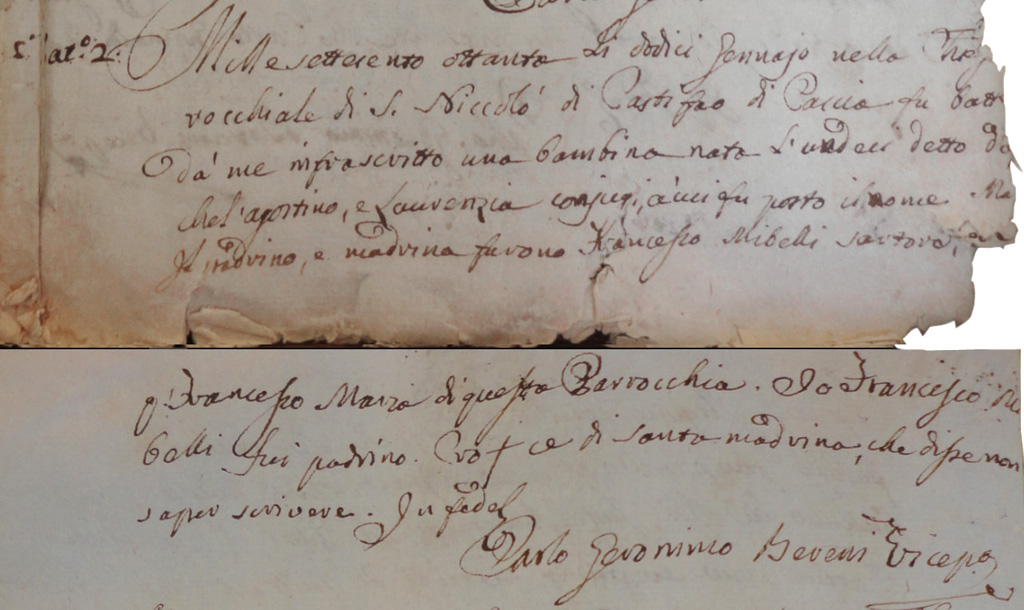 Mille settecento ottanta li dodici Gennajo nella
rocchiale di S. Niccolò di fu batt
da me infrascritto una bambina nata l'undeci detto
chel'agostino, e Laurenzia conjugi, a cui fu posto il nome Ma
Il padrino, e madrina furono Francesco Mibelli
q. Francesco Maria di questa Parrocchia. Io Francesco Mi
belli fui padrino. Cro + ce di santa madrina, che disse non
saper scrivere. In fede
Carlo Geronimo